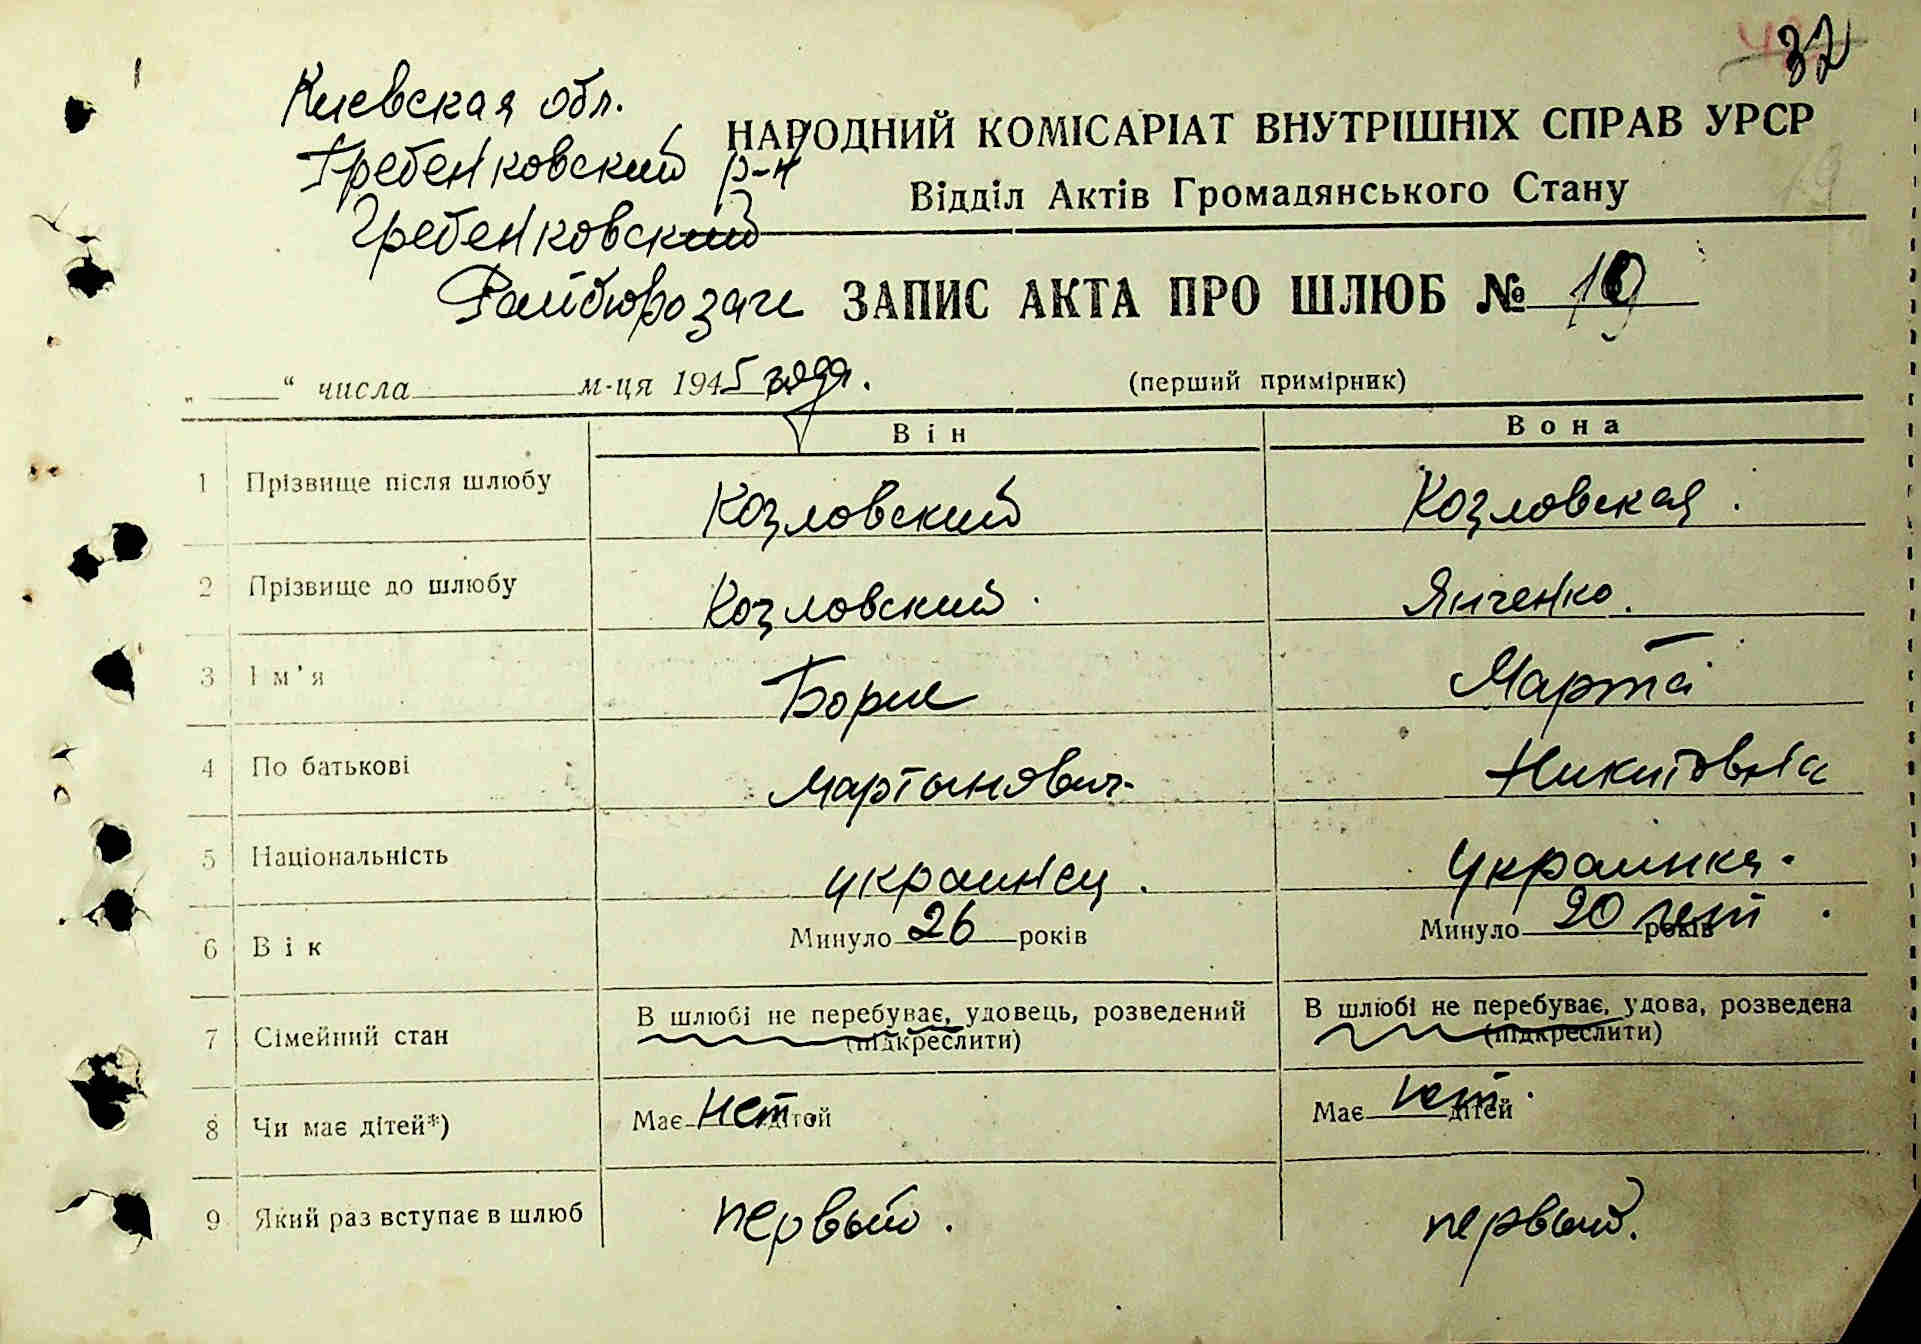 32
Киевская обл.
НАРОДНИЙ КОМІСАРІАТ ВНУТРІШНІХ СПРАВ УРСР
Гребенковский р-н
Відділ Актів Громадянського Стану
19
Гребенковский
Райбюрозагс ЗАПИС АКТА ПРО ШЛЮБ № 19
„ “ числа м-ця 1945 года. (перший примірник)
Він Вона
1 Прізвище після шлюбу Козловский Козловская.
2 Прізвище до шлюбу Козловский. Янченко.
3 Ім'я Борис Марта
4 По батькові Мартынович Никитовна
5 Національність украинец. Украинка.
6 Вік Минуло 26 років Минуло 20 лет років
7 Сімейний стан В шлюбі не перебуває, удовець, розведений В шлюбі не перебуває, удова, розведена
(підкреслити) (підкреслити)
8 Чи має дітей*) Має нет дітей Має нет дітей
9 Який раз вступає в шлюб первый. первый.